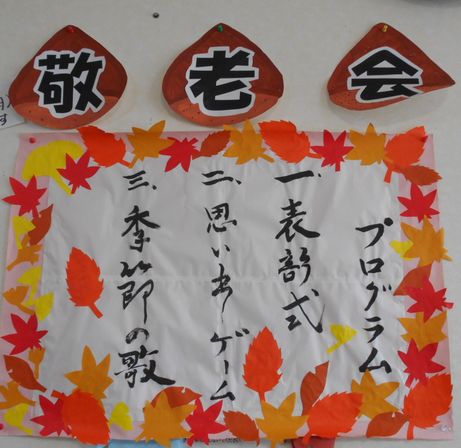 敬老会
プログラム
一、表彰式
二、思い出ゲーム
三、季節の歌